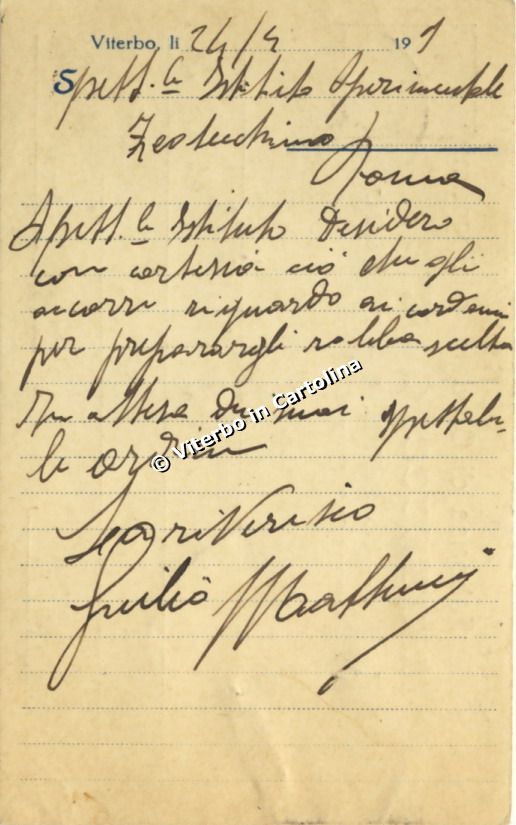 Viterbo, li 24/4 191
Spett.le Istituto Sperimentale
Zootecnico
Roma
Spett.le Istituto Desidero
con cortesia ciò che gli
occorre riguardo ai
per preparargli robba scelta
In attesa dei suoi spettabi-
li ordini
La riverisco
Giulio
© Viterbo in Cartolina